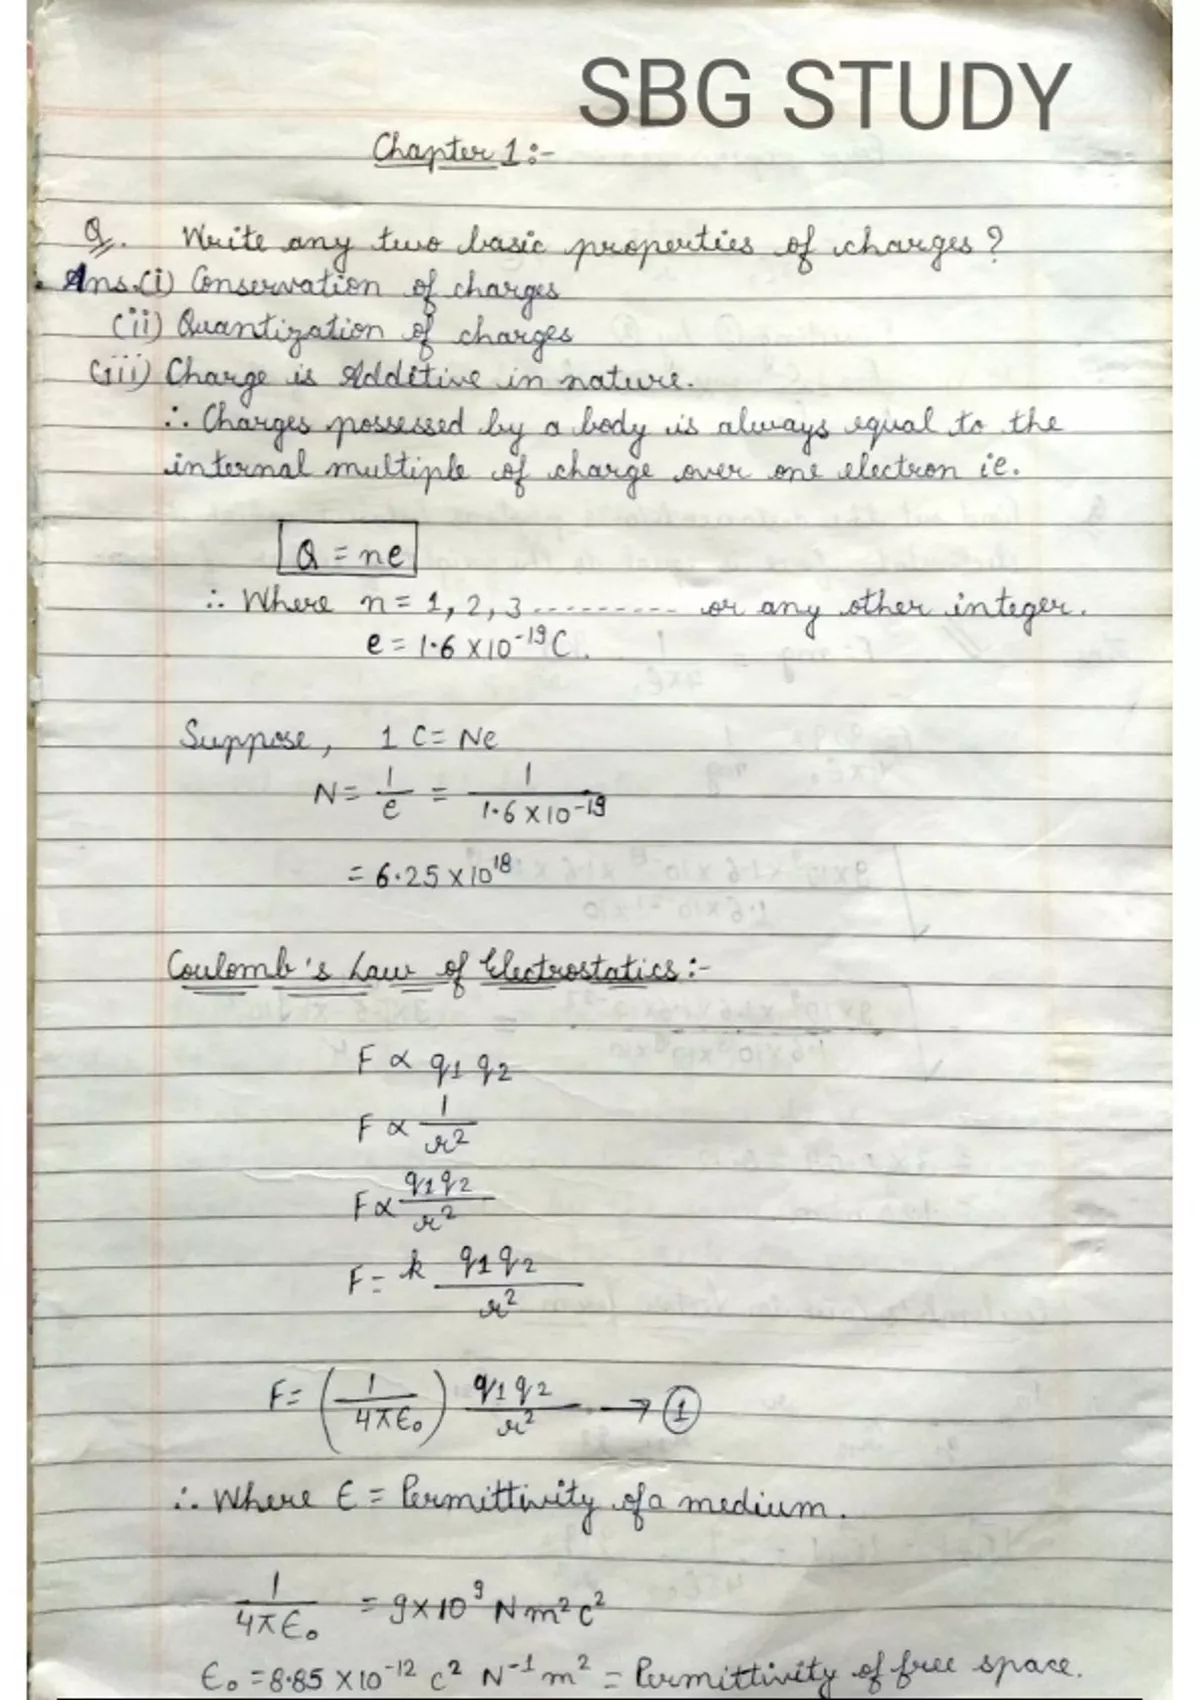 SBG STUDY
Chapter 1:-
Q. Write any two basic properties of charges?
Ans.(i) Conservation of charges
(ii) Quantization of charges
(iii) Charge is Additive in nature.
∴ Charges possessed by a body is always equal to the
internal multiple of charge over one electron ie.
Q = ne
∴ Where n = 1, 2, 3 --------- or any other integer.
e = 1.6 × 10⁻¹⁹ C.
Suppose, 1 C = Ne
N = 1/e = 1/1.6 × 10⁻¹⁹
= 6.25 × 10¹⁸
Coulomb's Law of Electrostatics:-
F ∝ q₁ q₂
F ∝ 1/r²
F ∝ q₁q₂/r²
F = k q₁q₂/r²
F = (1/4πϵ₀) q₁q₂/r² → ①
∴ Where ϵ = Permittivity of a medium.
1/4πϵ₀ = 9×10⁹ N m² c²
ϵ₀ = 8.85 × 10⁻¹² c² N⁻¹ m² = Permittivity of free space.